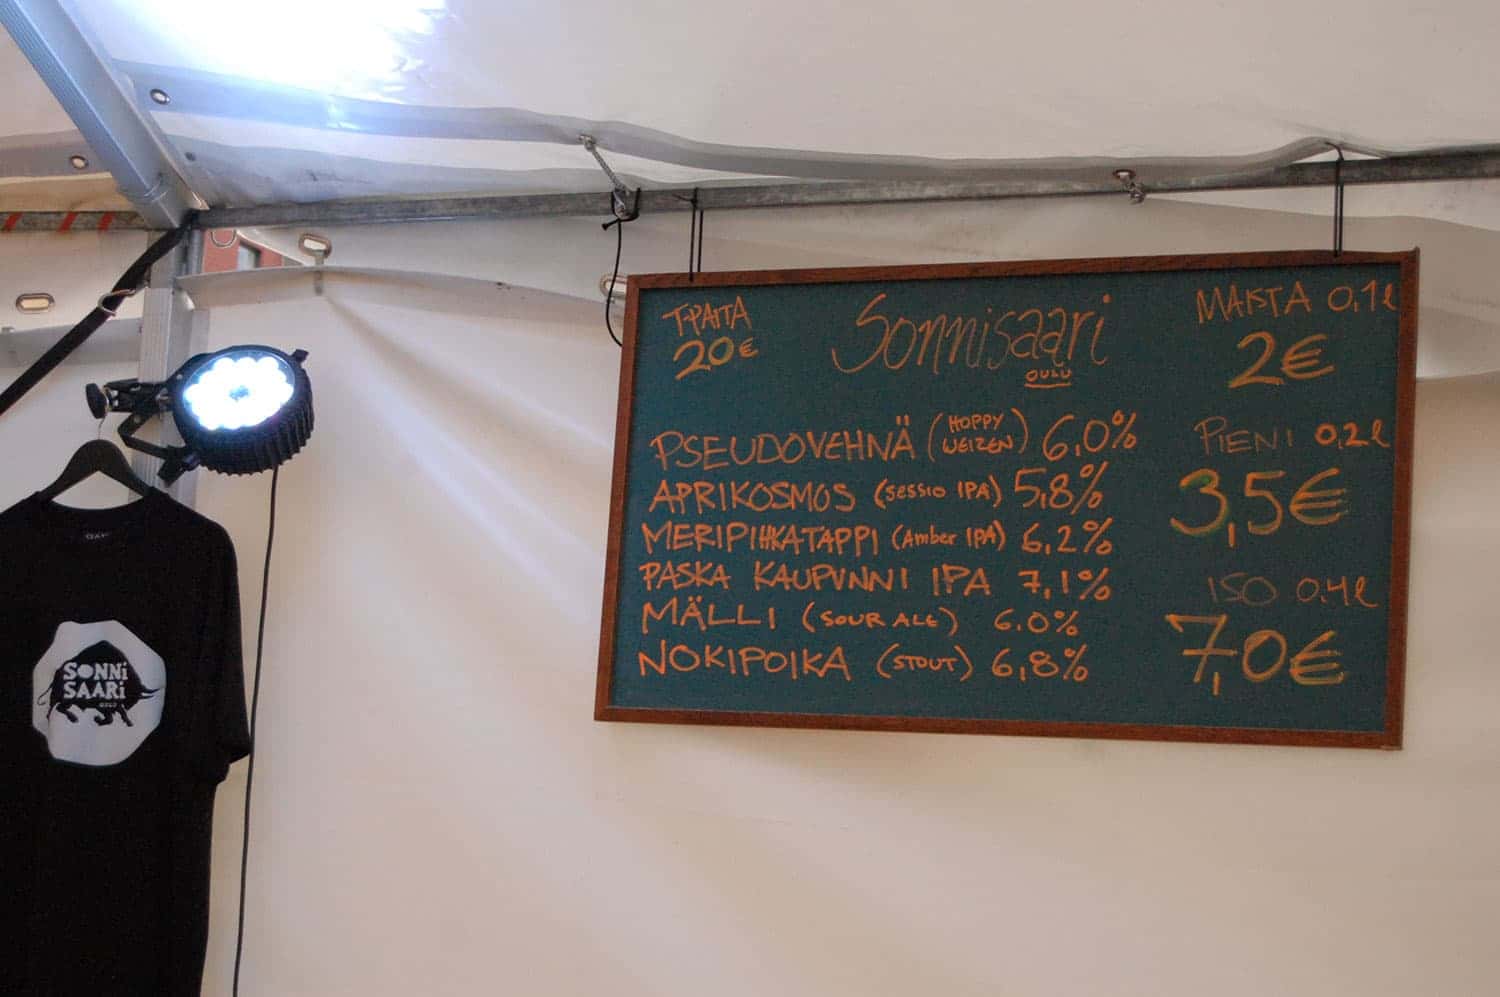 T-PAITA
20€
Sonnisaari
OULU
MAISTA 0,1l
2€
PSEUDOVEHNÄ (HOPPY WEIZEN) 6,0%
APRIKOSMOS (SESSIO IPA) 5,8%
MERIPIHKATAPPI (Amber IPA) 6,2%
PASKA KAUPUNNI IPA 7,1%
MÄLLI (SOUR ALE) 6.0%
NOKIPOIKA (STOUT) 6,8%
PIENI 0,2l
3,5€
ISO 0,4l
7,0€
SONNI
SAARI
OULU